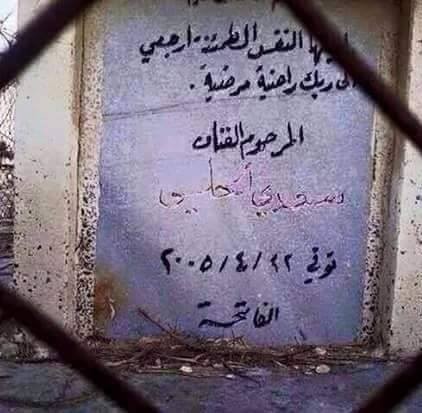 يا ايتها النفس المطمئنة ارجعي
الى ربك راضية مرضية .
المرحوم الفنان
سعدي الحلي
توفي ٢٢ / ٤ / ٢٠٠٥
الفاتحة